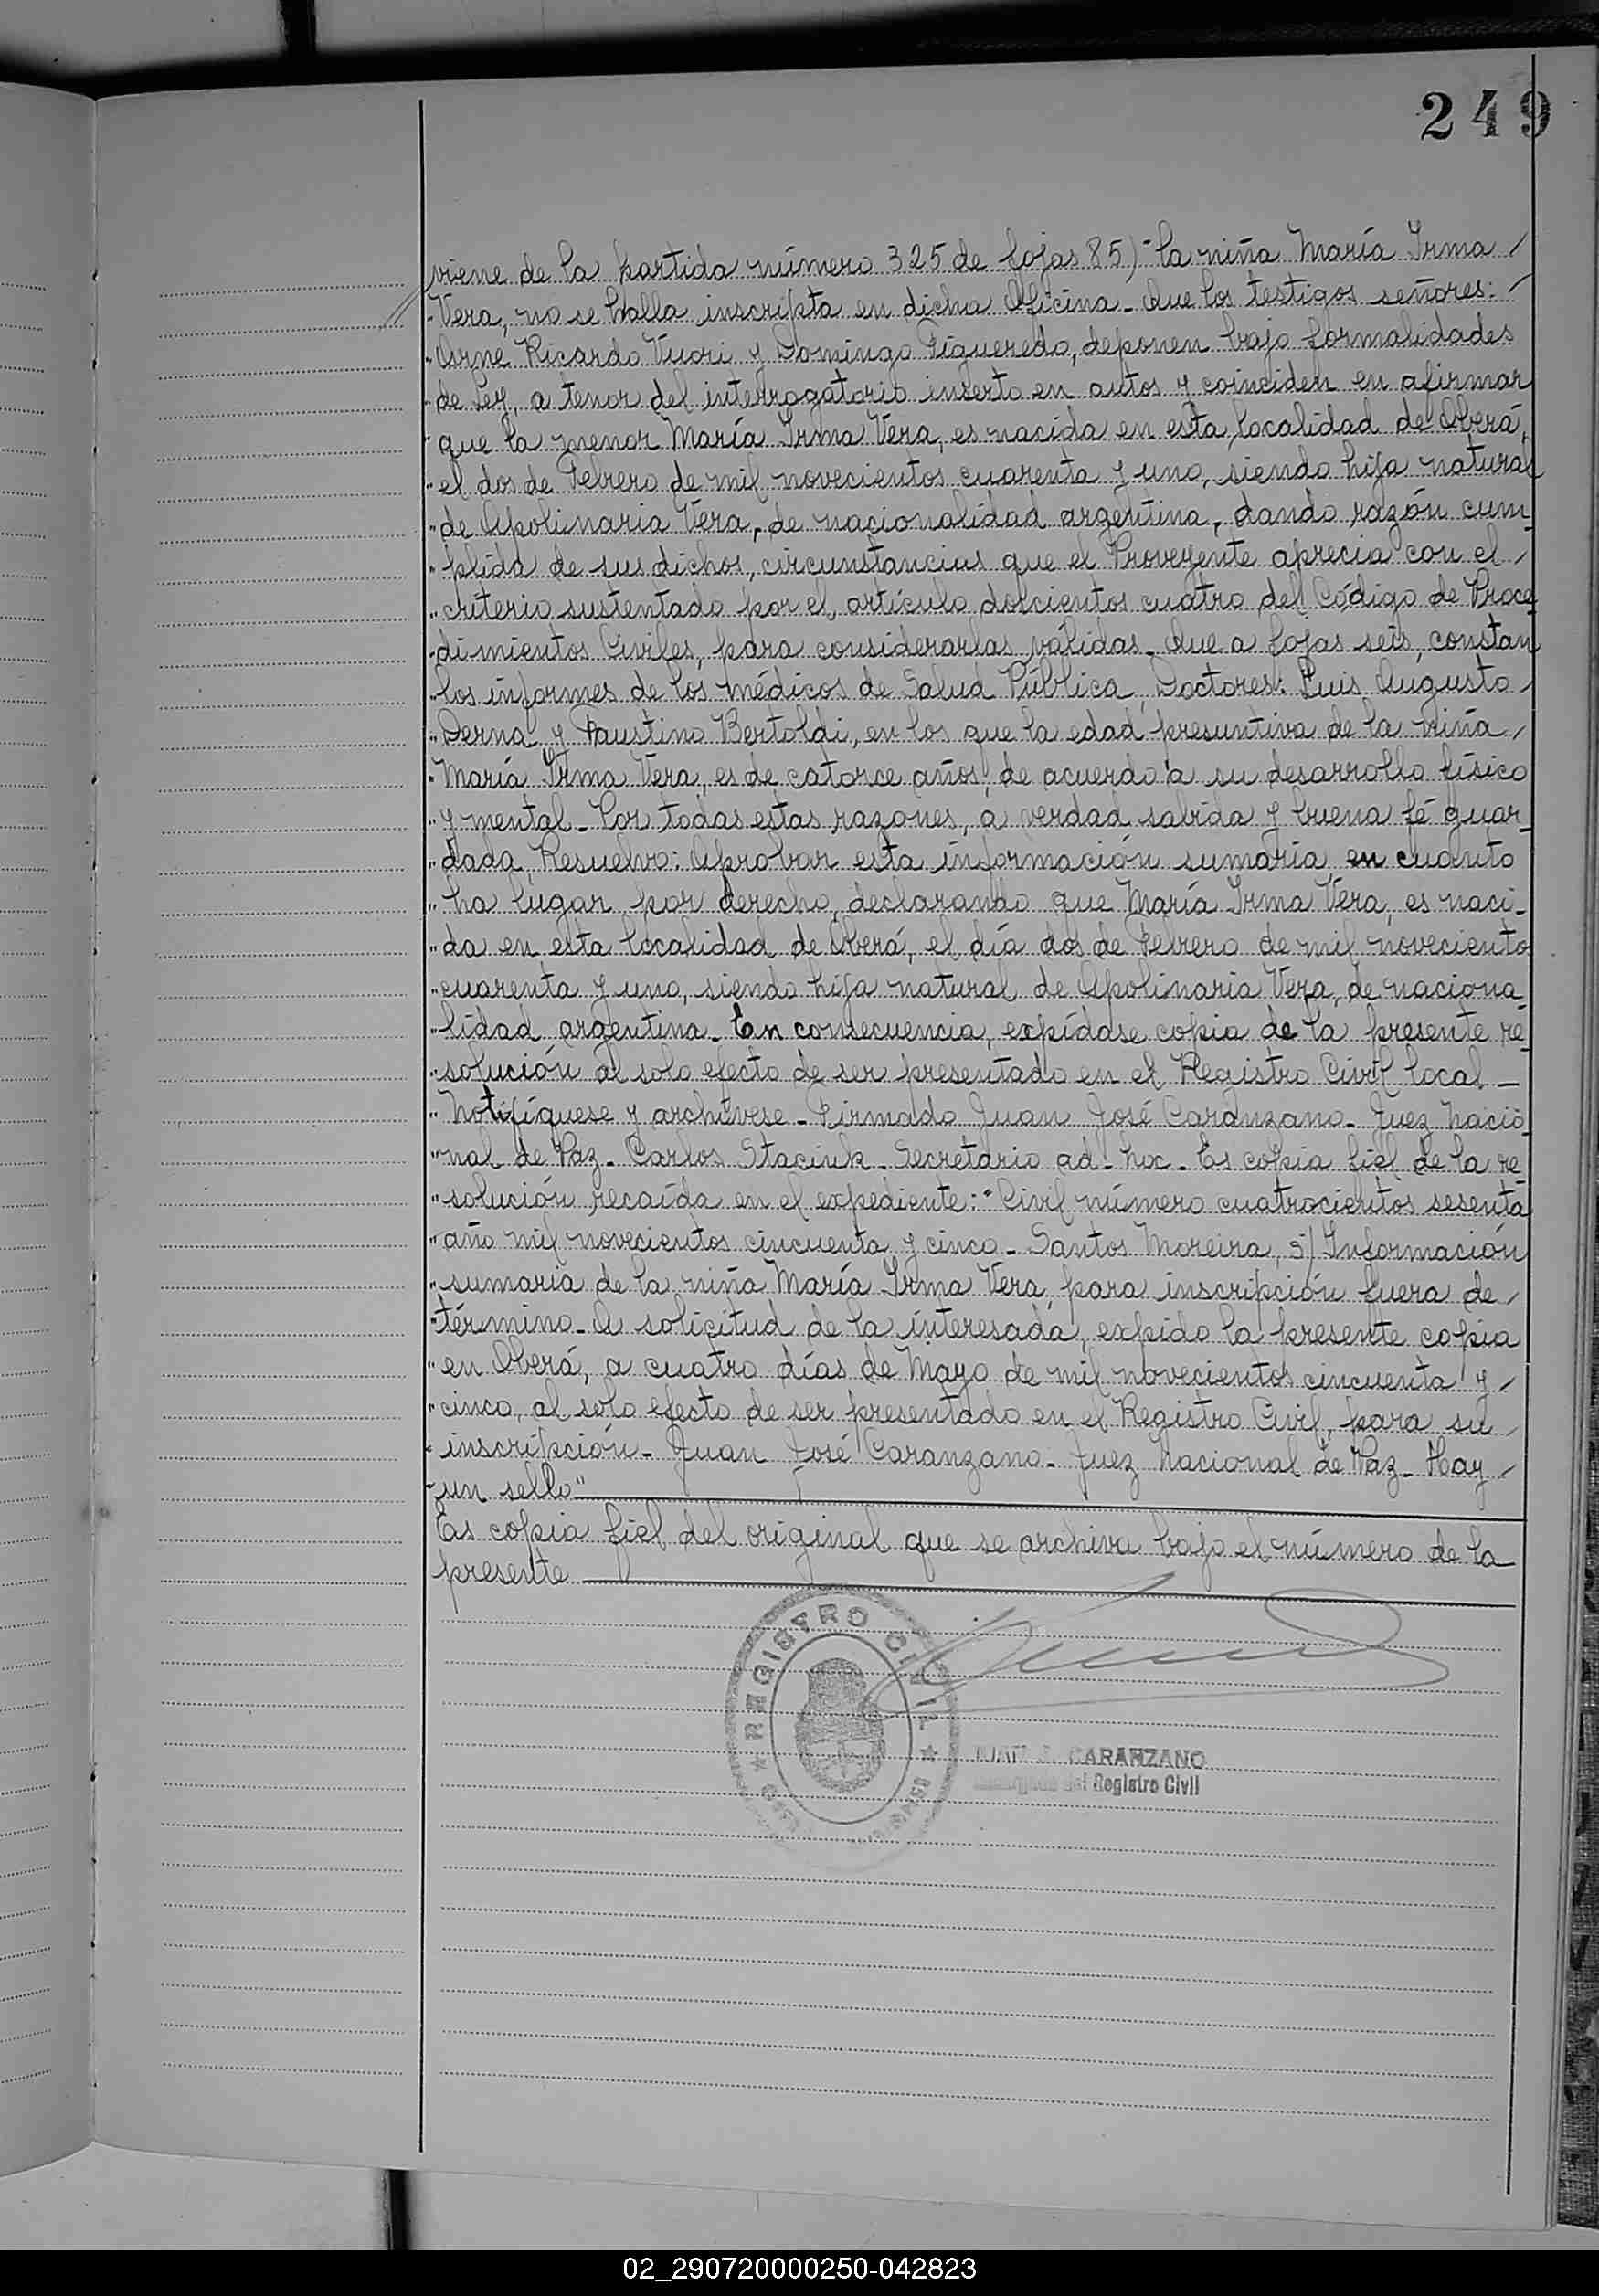 249
viene de la partida número 325 de fojas 85)-la niña María Irma /
"Vera, no se halla inscripta en dicha Oficina_ Que los testigos señores: /
"Arne Ricardo Vuori y Domingo Figueredo, deponen bajo formalidades
"de Ley, a tenor del interrogatorio inserto en autos y coinciden en afirmar
"que la menor María Irma Vera, es nacida en esta localidad de Oberá,
"el dos de Febrero de mil novecientos cuarenta y uno, siendo hija natural
"de Apolinaria Vera, de nacionalidad argentina, dando razón cum_
"plida de sus dichos, circunstancias que el Proveyente aprecia con el /
"criterio sustentado por el artículo doscientos cuatro del Código de Proce
"dimientos Civiles, para considerarlas válidas_ Que a fojas seis, constan
"los informes de los médicos de Salud Pública, Doctores: Luis Augusto /
"Derna y Faustino Bertoldi, en los que la edad presuntiva de la niña /
"María Irma Vera, es de catorce años, de acuerdo a su desarrollo físico
"y mental_ Por todas estas razones, a verdad sabida y buena fé guar_
"dada, Resuelvo: Aprobar esta información sumaria en cuanto
"ha lugar por derecho, declarando que María Irma Vera, es naci_
"da en esta localidad de Oberá, el día dos de Febrero de mil novecientos
"cuarenta y uno, siendo hija natural de Apolinaria Vera, de naciona_
"lidad argentina_ En consecuencia, expídase copia de la presente re_
"solución al solo efecto de ser presentado en el Registro Civil local_
"Notifíquese y archívese_ Firmado Juan José Caranzano_ Juez Nacio_
"nal de Paz_ Carlos Staciuk_ Secretario ad_hoc_ Es copia fiel de la re_
"solución recaída en el expediente: "Civil número cuatrocientos sesenta
"año mil novecientos cincuenta y cinco_ Santos Moreira, s/ Información
"sumaria de la niña María Irma Vera, para inscripción fuera de /
"término_ A solicitud de la interesada, expido la presente copia
"en Oberá, a cuatro días de Mayo de mil novecientos cincuenta y /
"cinco, al solo efecto de ser presentado en el Registro Civil, para su /
"inscripción_ Juan José Caranzano_ Juez Nacional de Paz_ Hay /
"un sello"
Es copia fiel del original que se archiva bajo el número de la
presente
REGISTRO CIVIL
JUAN J. CARANZANO
del Registro Civil
02_290720000250-042823